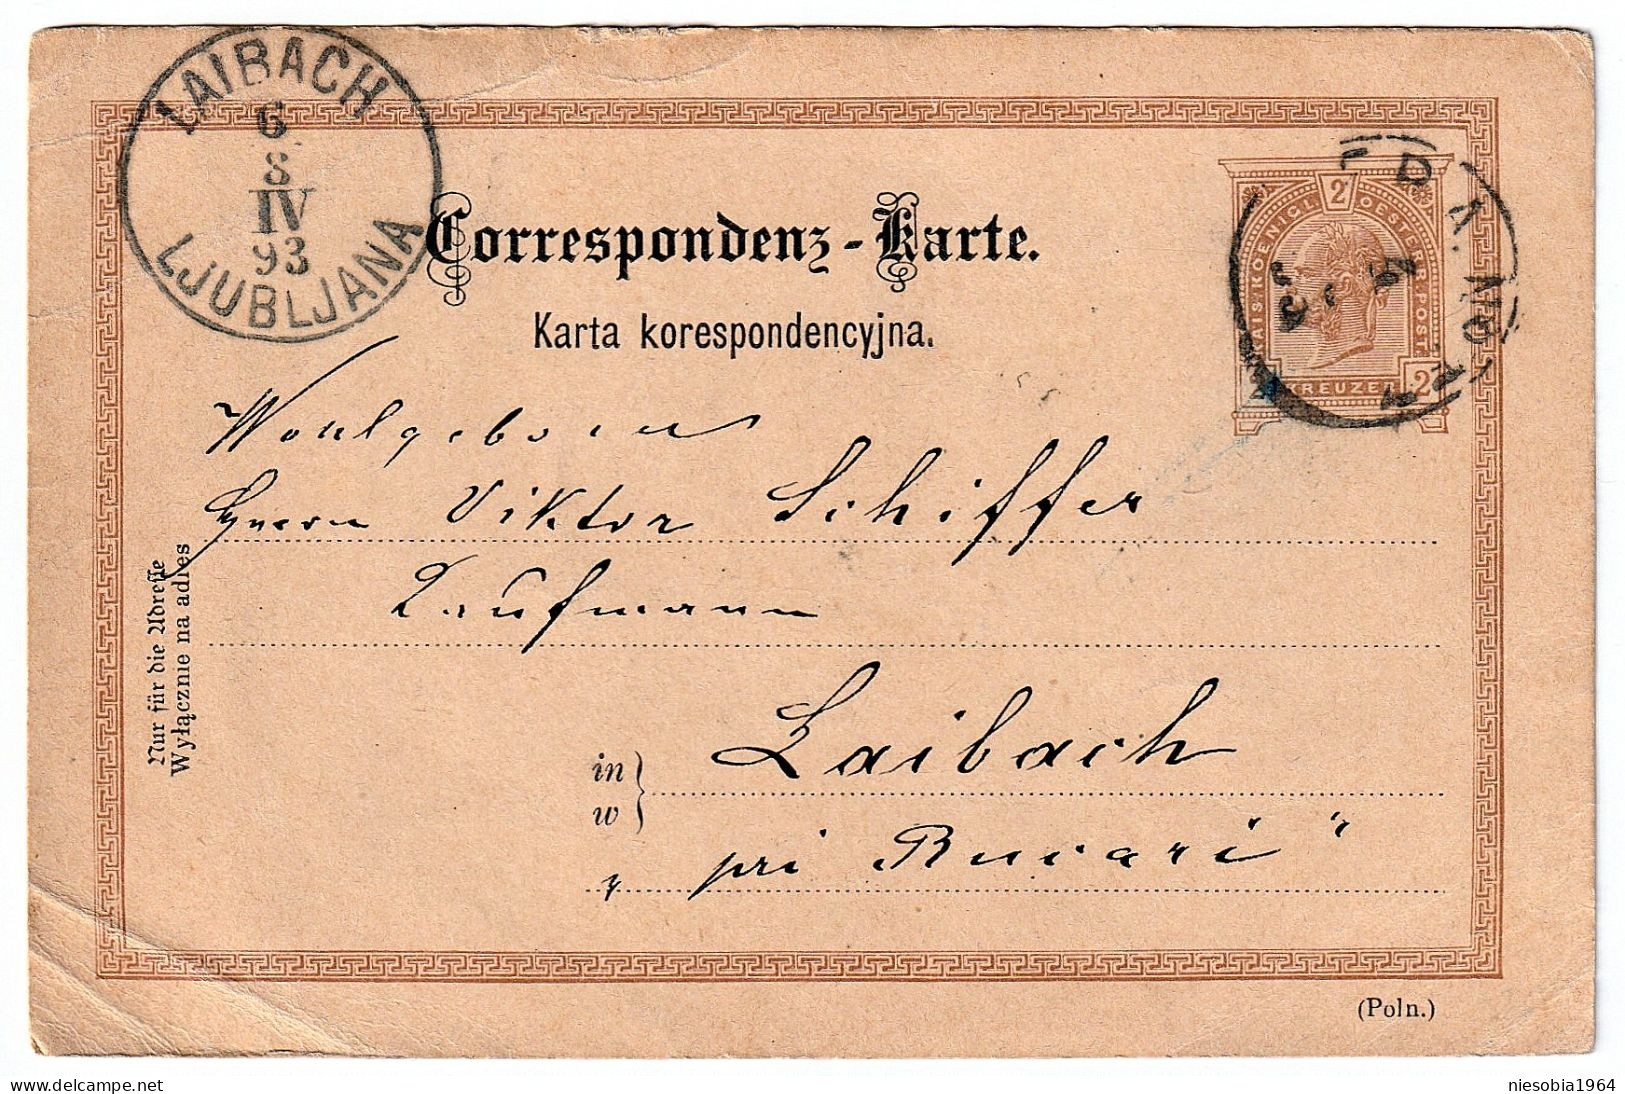 LAIBACH
6
8
IV
93
LJUBLJANA
Correspondenz-Karte.
Karta korespondencyjna.
KAIS. KOENIGL. OESTERR. POST.
2
2 KREUZER 2
Wohlgeboren
Herrn Viktor Schiffer
Kaufmann
in Laibach
w
pri Bucari"
Nur für die Adresse
Wyłącznie na adres
(Poln.)
niesobia1964